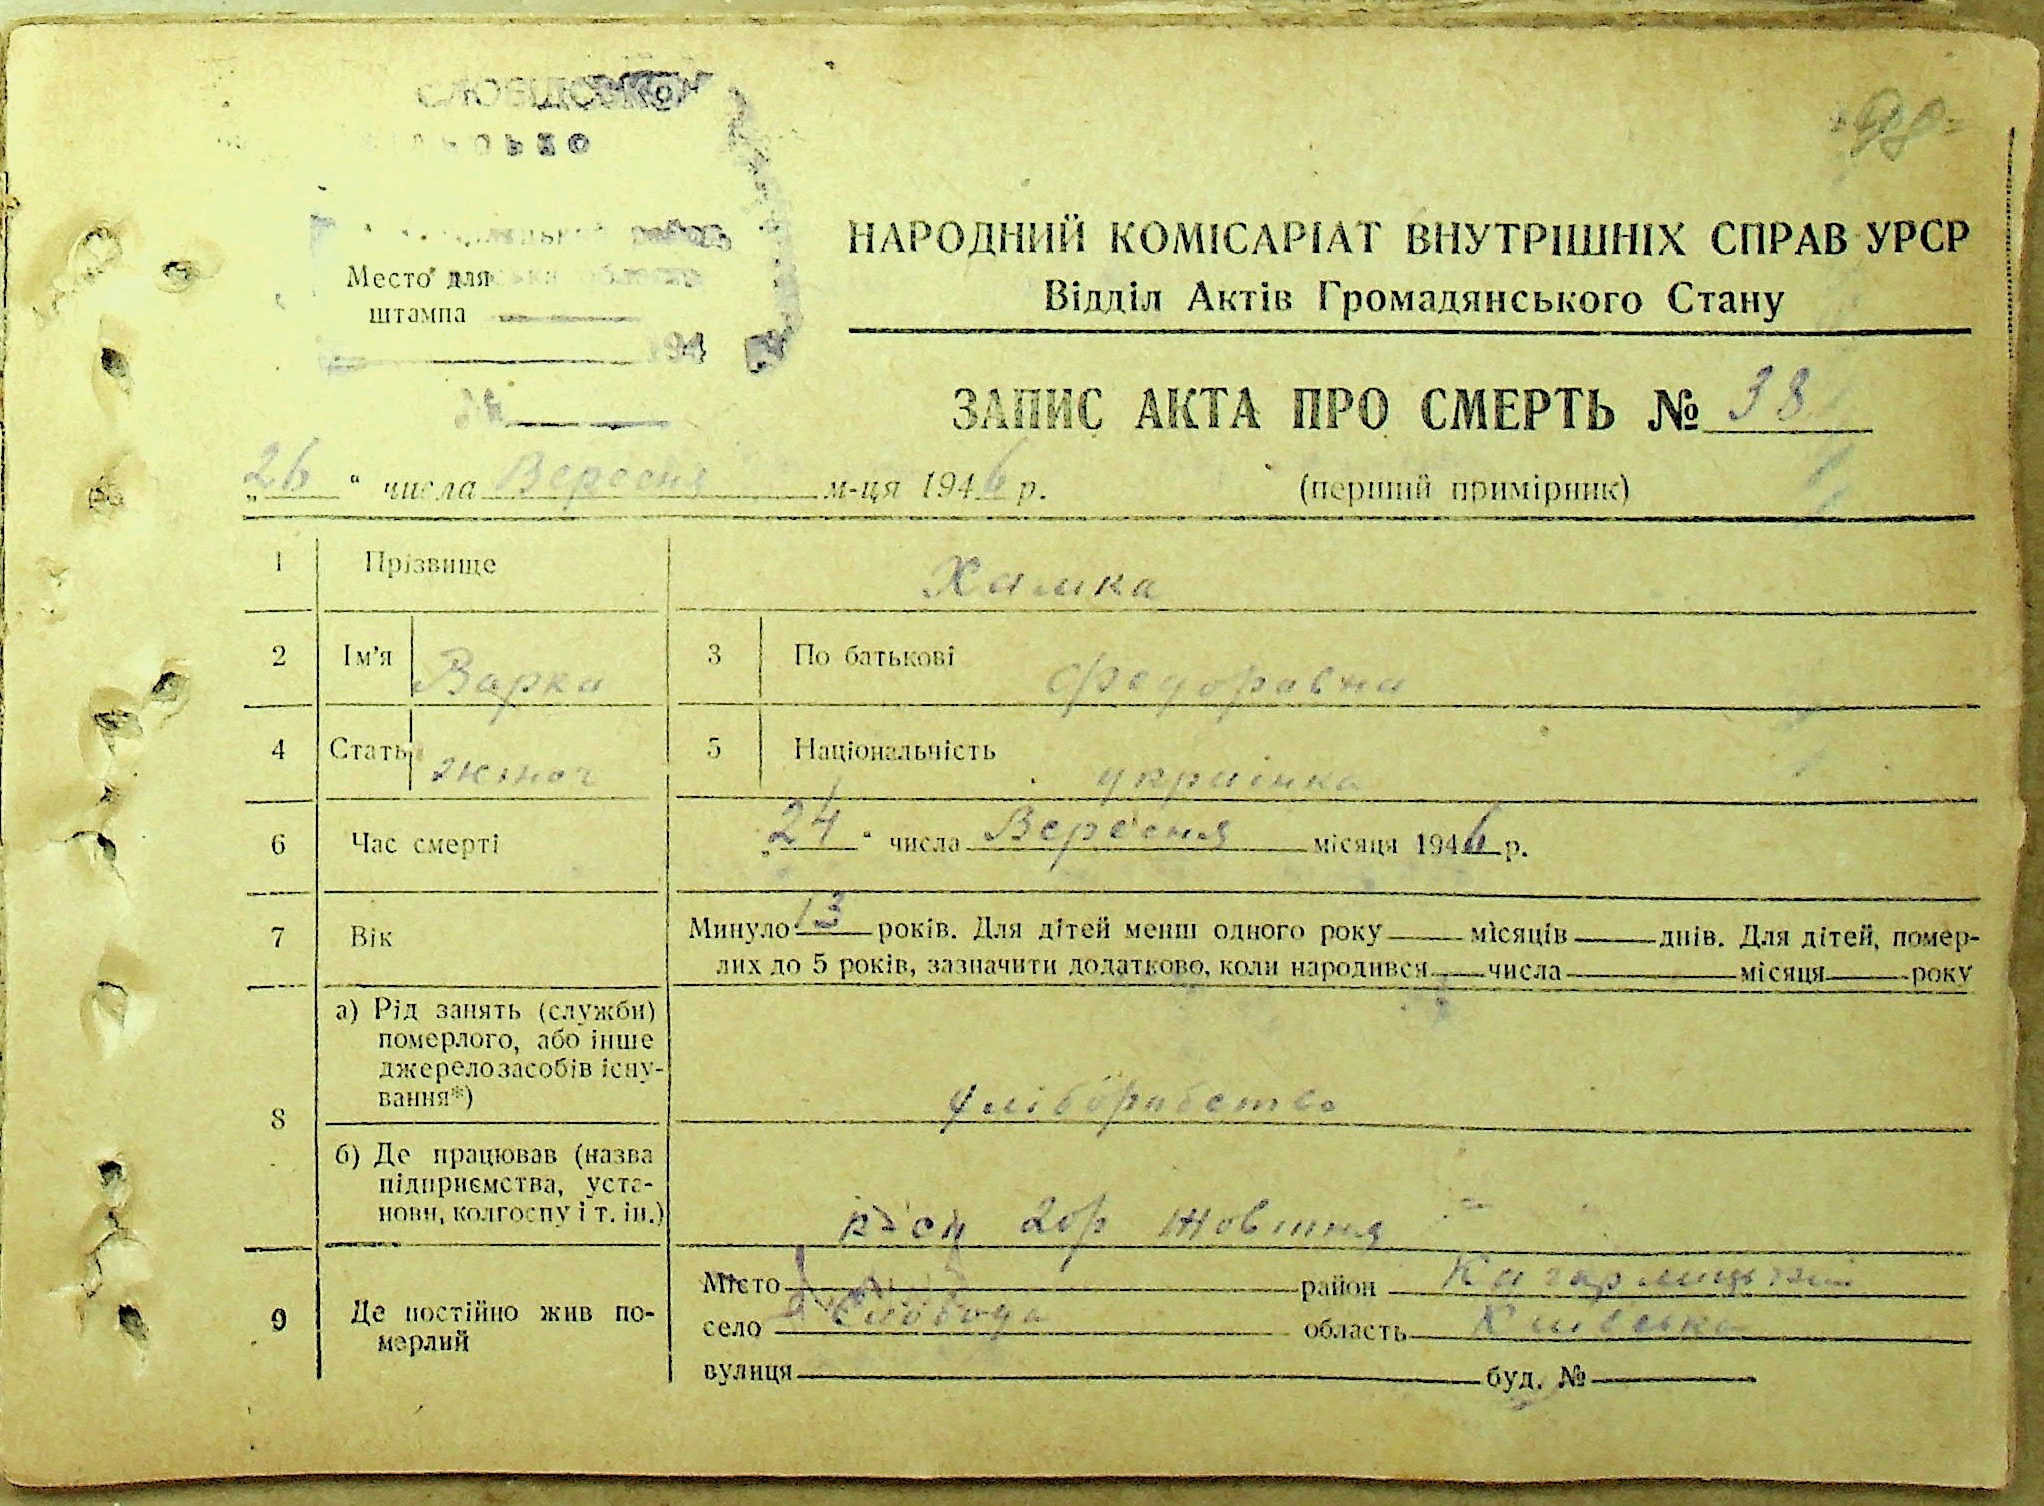 98
НАРОДНИЙ КОМІСАРІАТ ВНУТРІШНІХ СПРАВ УРСР
Відділ Актів Громадянського Стану
Место для
штампа
194
ЗАПИС АКТА ПРО СМЕРТЬ № 38
„26“ числа Вересня м-ця 1946 р. (перший примірник)
1 Прізвище Халика
2 Ім'я Варка 3 По батькові Федоравна
4 Стать жіноч 5 Національність украінка
6 Час смерті „24“ числа Вересня місяця 1946 р.
7 Вік Минуло 13 років. Для дітей менш одного року місяців днів. Для дітей, помер-
лих до 5 років, зазначити додатково, коли народився числа місяця року
8 а) Рід занять (служби)
померлого, або інше
джерело засобів існу-
вання*)
б) Де працював (назва
підприємства, уста-
нови, колгоспу і т. ін.)
гор Жовтня
9 Де постійно жив по-
мерлий
Місто район Кагарлицький
село Слобода область Київська
вулиця буд. №